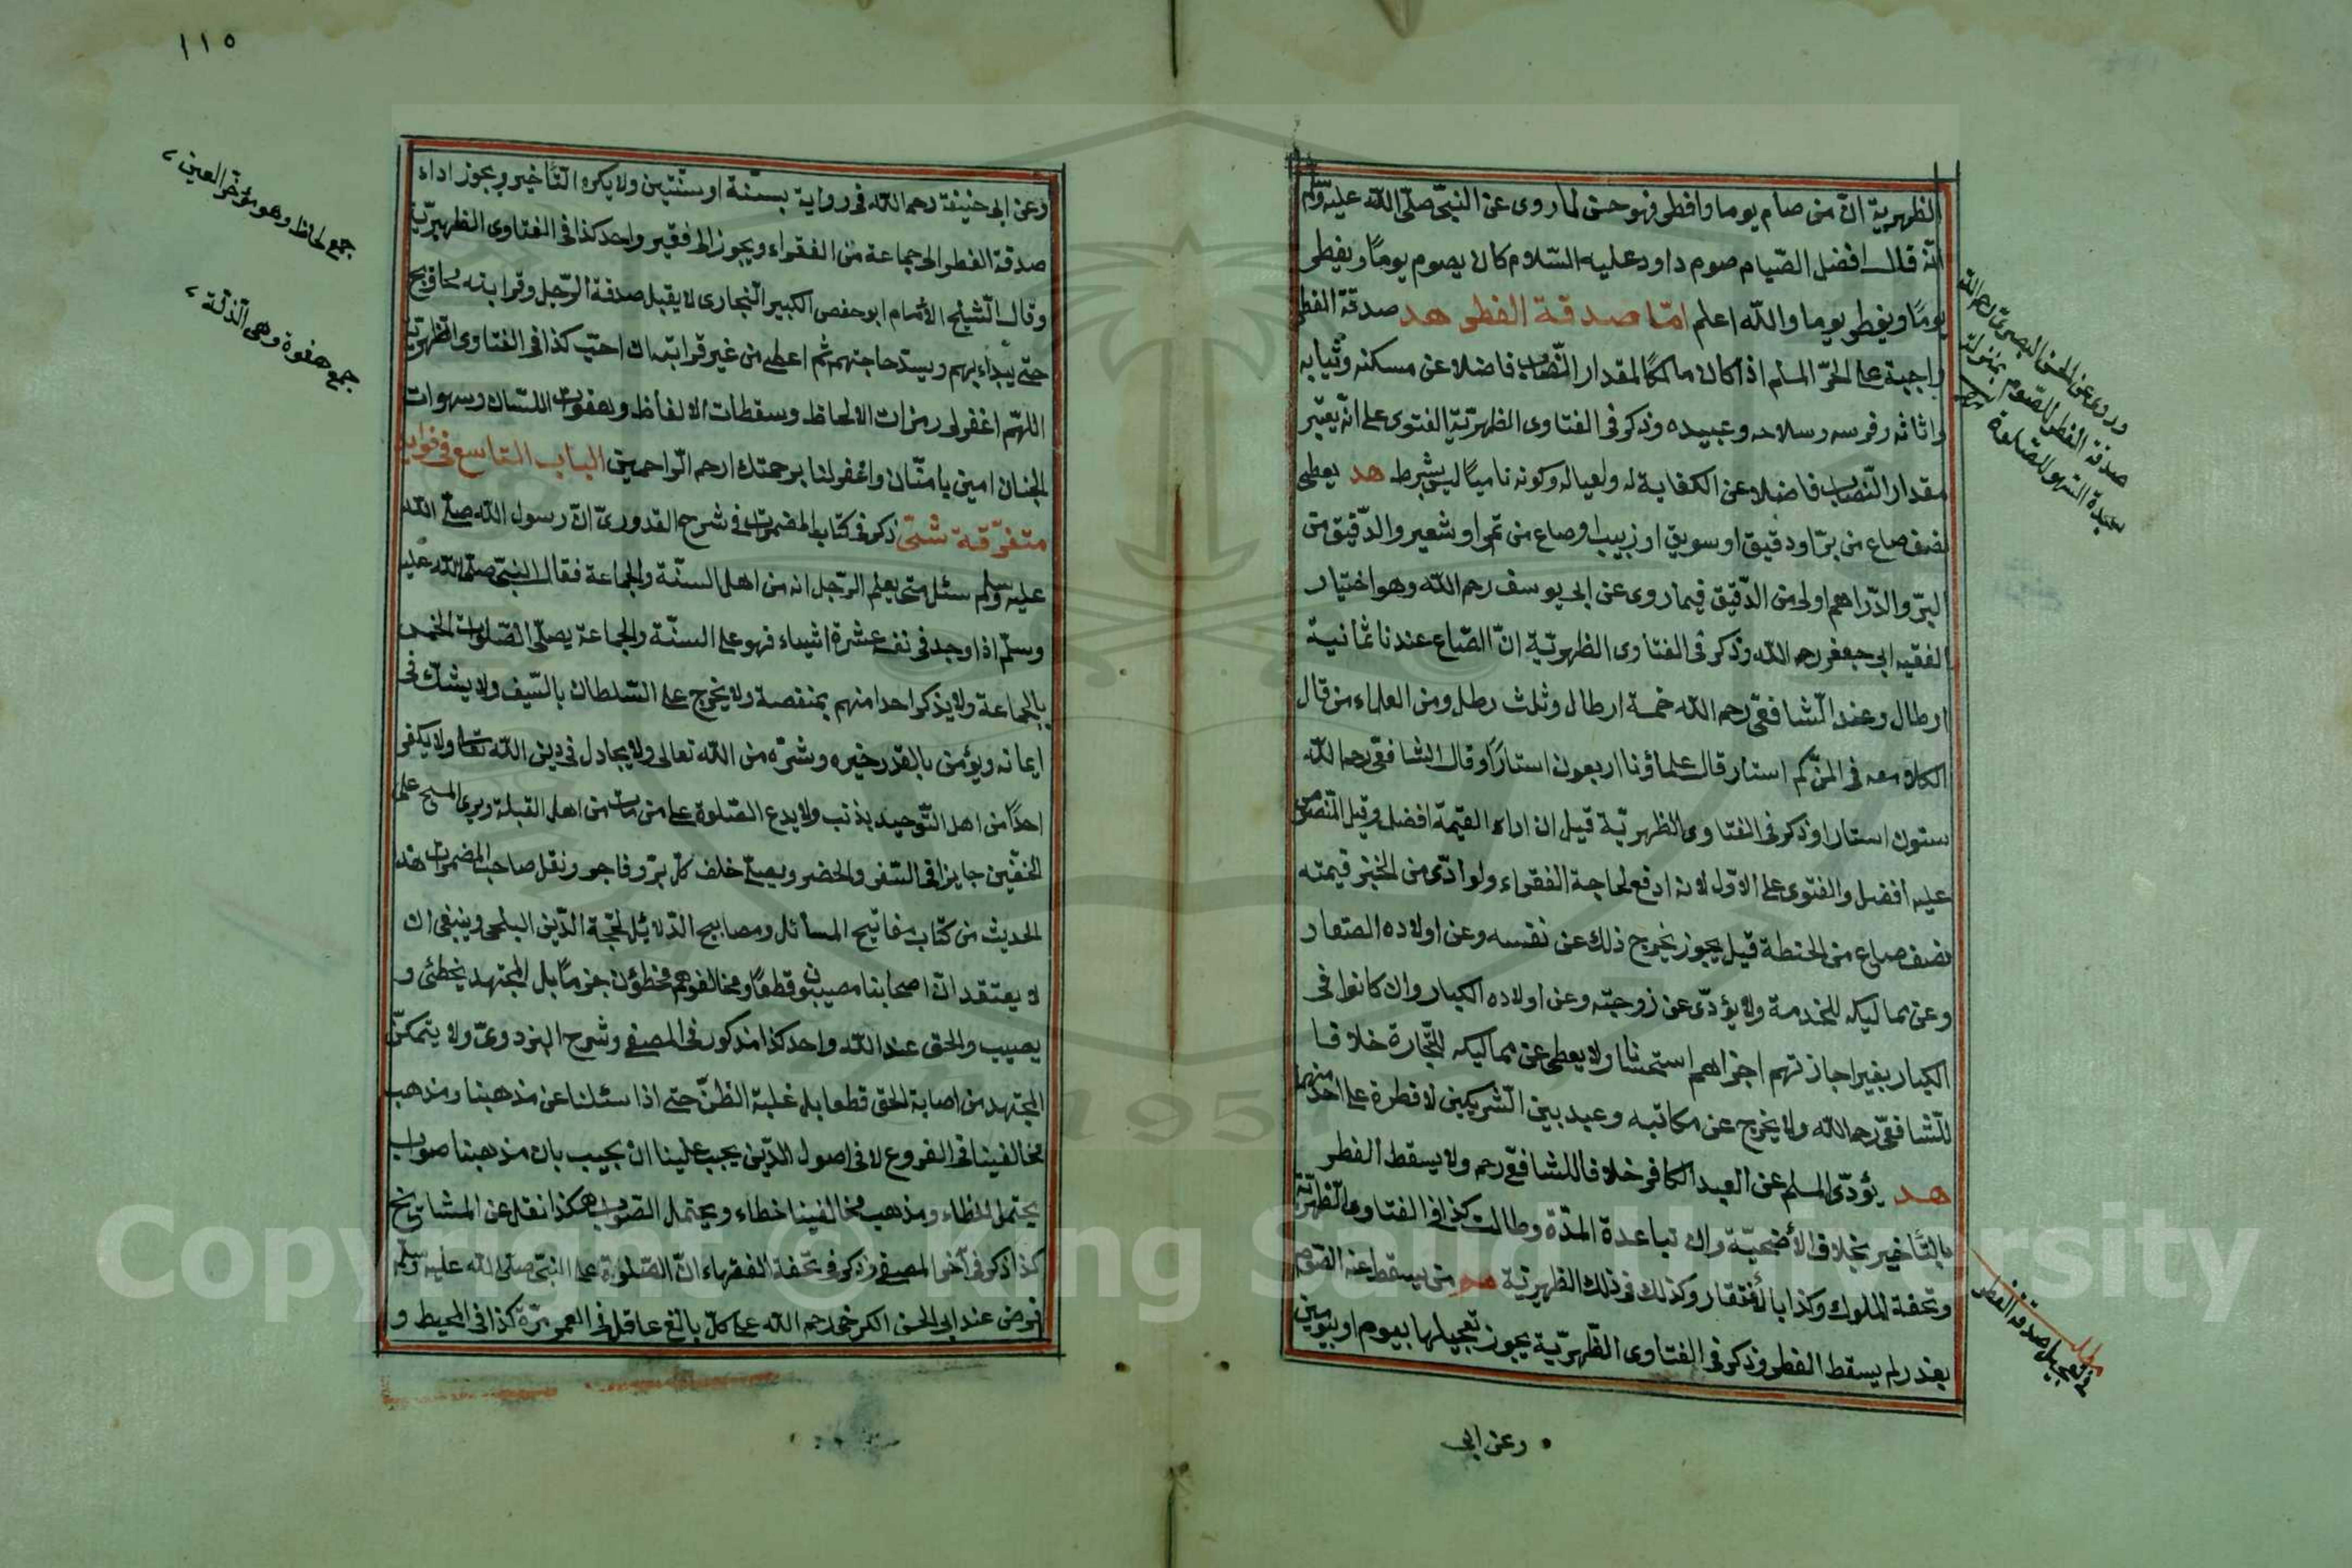 الظهيرية انّ من صام يوما وافطر فهو حسن لما روى عن النبىّ صلّى اللّه عليه وسلّم
انّه قال افضل الصّيام صوم داود عليه السّلام كان يصوم يومًا ويفطر
يومًا ويفطر يوما واللّه اعلم امّا صدقة الفطر هد صدقة الفطر
واجبة على الحرّ المسلم اذا كان مالكًا لمقدار النّصاب فاضلا عن مسكنه وثيابه
واثاثه وفرسه وسلاحه وعبيده وذكر فى الفتاوى الظهيريّة الفتوى على انّه يعتبر
مقدار النّصاب فاضلا عن الكفاية له ولعياله وكونه ناميًا ليس بشرط هد يعطى
نصف صاع من برّ او دقيق او سويق او زبيب او صاع من تمر او شعير والدّقيق من
البرّ والدّراهم اولى من الدّقيق فيما روى عن ابى يوسف رحمه اللّه وهو اختيار
الفقيه ابى جعفر رحمه اللّه وذكر فى الفتاوى الظهيريّة انّ الصّاع عندنا ثمانية
ارطال وعند الشّافعىّ رحمه اللّه خمسة ارطال وثلث رطل ومن العلماء من قال
الكلام معه فى المنّ كم استار قال علماؤنا اربعون استارًا وقال الشافعىّ رحمه اللّه
ستون استارا وذكر فى الفتاوى الظهيريّة قيل ان اداء القيمة افضل وقيل المنصوص
عليه افضل والفتوى على الاوّل لانه ادفع لحاجة الفقراء ولو ادّى من الخبز قيمته
نصف صاع من الحنطة قيل يجوز يخرج ذلك عن نفسه وعن اولاده الصغار
وعن مماليكه للخدمة ولا يؤدّى عن زوجته وعن اولاده الكبار وان كانوا فى
الكبار بغير اجازتهم اجزاهم استحسانا ولا يعطى عن مماليكه للتّجارة خلافا
للشّافعىّ رحمه اللّه ولا يخرج عن مكاتبه وعبد بين الشّريكين لا فطرة على احد منهما
هد يؤدّى المسلم عن العبد الكافر خلافا للشافعى رحمه ولا يسقط الفطر
بالتّاخير بخلاف الأضحيّة وان تباعدة المدّة وطالت كذا فى الفتاوى الظهيريّة
وتحفة الملوك وكذا بالافتقار وكذلك فى ذلك الظهيريّة هد من يسقط عنه الصّوم
بعذر لم يسقط الفطر وذكر فى الفتاوى الظّهيريّة يجوز تعجيلها بيوم او بيومين
وروى عن الحسن البصرىّ رحمه اللّه
صدقة الفطر للصّوم بمنزلة
سجدة السّهو للصّلوة
مطلب
فى تعجيل صدقة الفطر
وعن ابى
١١٥
وعن ابى حنيفة رحمه اللّه فى رواية بسنة او سنتين ولا يكره التّأخير ويجوز اداء
صدقة الفطر الى جماعة من الفقراء ويجوز الى فقير واحد كذا فى الفتاوى الظهيريّة
وقال الشّيخ الأمام ابو حفص الكبير البخارى لا يقبل صدقة الرّجل وقرابته محاويج
حتى يبداء بهم ويسدّ حاجتهم ثم اعطى من غير قرابته ان احبّ كذا فى الفتاوى الظهيريّة
اللهّم اغفر لى رمزات الالحاظ وسقطات الالفاظ وهفوات اللسان وسهوات
الجنان امين يا منّان واغفر لنا برحمتك ارحم الرّاحمين الباب التاسع فى فوايد
متفرّقة شتّى ذكر فى كتاب المضمرات فى شرح القدورىّ انّ رسول اللّه صلّى اللّه
عليه وسلّم سئل متى يعلم الرّجل انه من اهل السنّة والجماعة فقال النبىّ صلّى اللّه عليه
وسلّم اذا وجد فى نفسه عشرة اشياء فهو على السنّة والجماعة يصلّى الصّلوات الخمس
بالجماعة ولا يذكر احدا منهم بمنقصة ولا يخرج على السّلطان بالسّيف ولا يشك فى
ايمانه ويؤمن بالقدر خيره وشرّه من اللّه تعالى ولا يجادل فى دين اللّه تعالى ولا يكفر
احدًا من اهل التّوحيد بذنب ولا يدع الصّلوة على من مات من اهل القبلة ويرى المسح على
الخفّين جايزا فى السّفر والحضر ويصلّى خلف كلّ برّ وفاجر ونقل صاحب المضمرات هذه
الحديث من كتاب مفاتيح المسائل ومصابيح الدّلائل لحجّة الدّين البلخى وينبغى ان
لا يعتقد انّ اصحابنا مصيبون قطعًا ومخالفوهم مخطؤن جزمًا بل المجتهد يخطئ و
يصيب والحق عند اللّه واحد كذا مذكور فى المصفى وشرح البزدوىّ ولا يتمكّن
المجتهد من اصابة الحق قطعا بل غلبة الظنّ حتى اذا سئلنا عن مذهبنا ومذهب
مخالفينا فى الفروع لا فى اصول الدّين يجب علينا ان نجيب بان مذهبنا صواب
يحتمل الخطاء ومذهب مخالفينا خطاء ويحتمل الصّواب هكذا نقل عن المشايخ
كذا ذكر فى آخر المصفى وذكر فى تحفة الفقهاء انّ الصّلوة على النّبىّ صلّى اللّه عليه وسلّم
فرض عند ابى الحسن الكرخى رحمه اللّه على كلّ بالغ عاقل فى العمر مرّة كذا فى المحيط و
جمع لحاظ وهو مؤخر العين
جمع هفوة وهى الذلّة
Copyright © King Saud University
1957